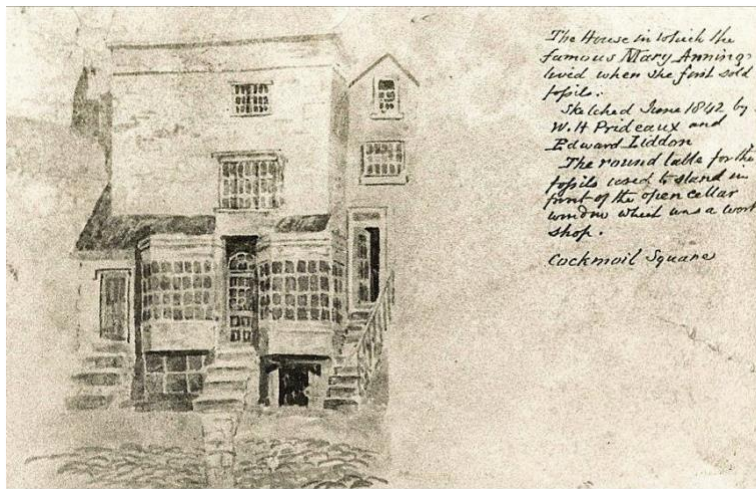 The House in which the
famous Mary Anning
lived when she first sold
fossils.
Sketched June 1842 by
W. H Prideaux and
Edward Liddon
The round table for the
fossils used to stand in
front of the open cellar
window which was a work
shop.
Cockmoil Square